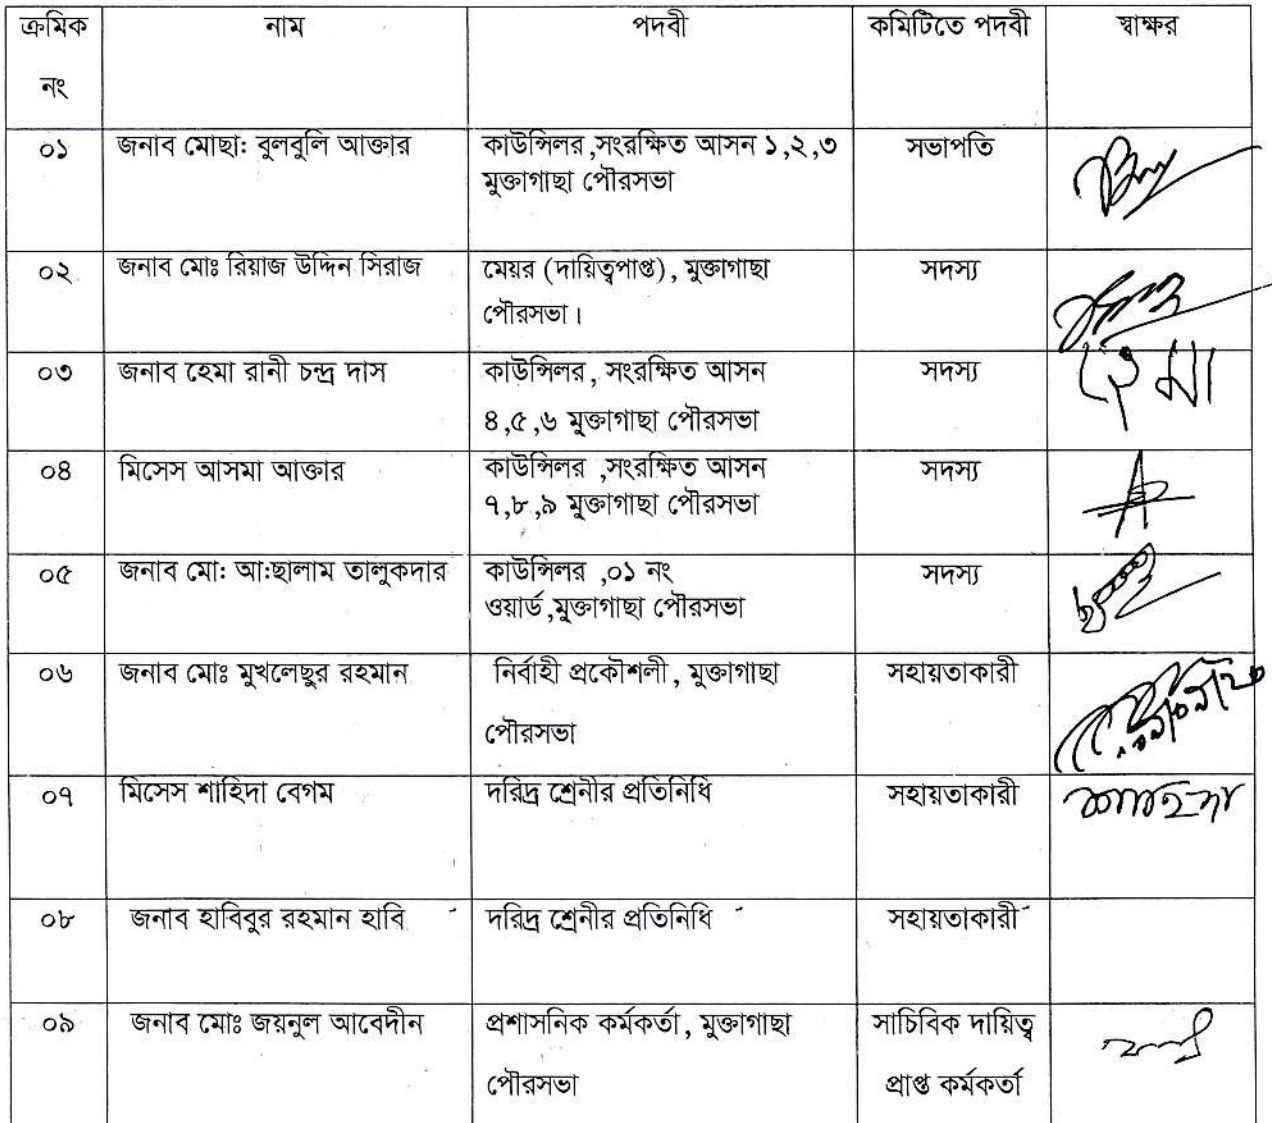 ক্রমিক নাম পদবী কমিটিতে পদবী স্বাক্ষর
নং
০১ জনাব মোছা: বুলবুলি আক্তার কাউন্সিলর ,সংরক্ষিত আসন ১,২,৩ সভাপতি
মুক্তাগাছা পৌরসভা
০২ জনাব মোঃ রিয়াজ উদ্দিন সিরাজ মেয়র (দায়িত্বপাপ্ত), মুক্তাগাছা সদস্য
পৌরসভা।
০৩ জনাব হেমা রানী চন্দ্র দাস কাউন্সিলর, সংরক্ষিত আসন সদস্য হেমা
৪,৫,৬ মুক্তাগাছা পৌরসভা
০৪ মিসেস আসমা আক্তার কাউন্সিলর ,সংরক্ষিত আসন সদস্য
৭,৮,৯ মুক্তাগাছা পৌরসভা
০৫ জনাব মো: আ:ছালাম তালুকদার কাউন্সিলর ,০১ নং সদস্য
ওয়ার্ড,মুক্তাগাছা পৌরসভা
০৬ জনাব মোঃ মুখলেছুর রহমান নির্বাহী প্রকৌশলী, মুক্তাগাছা সহায়তাকারী
পৌরসভা
০৭ মিসেস শাহিদা বেগম দরিদ্র শ্রেনীর প্রতিনিধি সহায়তাকারী শাহিদা
০৮ জনাব হাবিবুর রহমান হাবি দরিদ্র শ্রেনীর প্রতিনিধি সহায়তাকারী
০৯ জনাব মোঃ জয়নুল আবেদীন প্রশাসনিক কর্মকর্তা, মুক্তাগাছা সাচিবিক দায়িত্ব
পৌরসভা প্রাপ্ত কর্মকর্তা